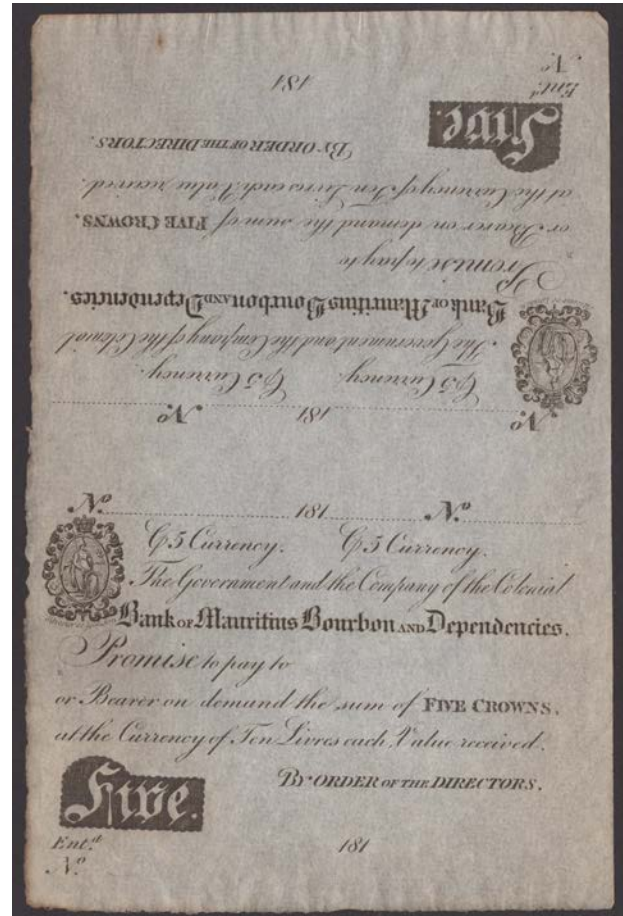 181
No.
Ent.d
Five.
BY ORDER OF THE DIRECTORS.
at the Currency of Ten Livres each Value received.
or Bearer on demand the sum of FIVE CROWNS.
Promise to pay to
Bank OF Mauritius Bourbon AND Dependencies.
The Government and the Company of the Colonial
C5 Currency. C5 Currency.
No. 181 No.
No. 181 No.
C5 Currency. C5 Currency.
The Government and the Company of the Colonial
Bank OF Mauritius Bourbon AND Dependencies.
Promise to pay to
or Bearer on demand the sum of FIVE CROWNS.
at the Currency of Ten Livres each Value received.
BY ORDER OF THE DIRECTORS.
Five.
Ent.d
No. 181